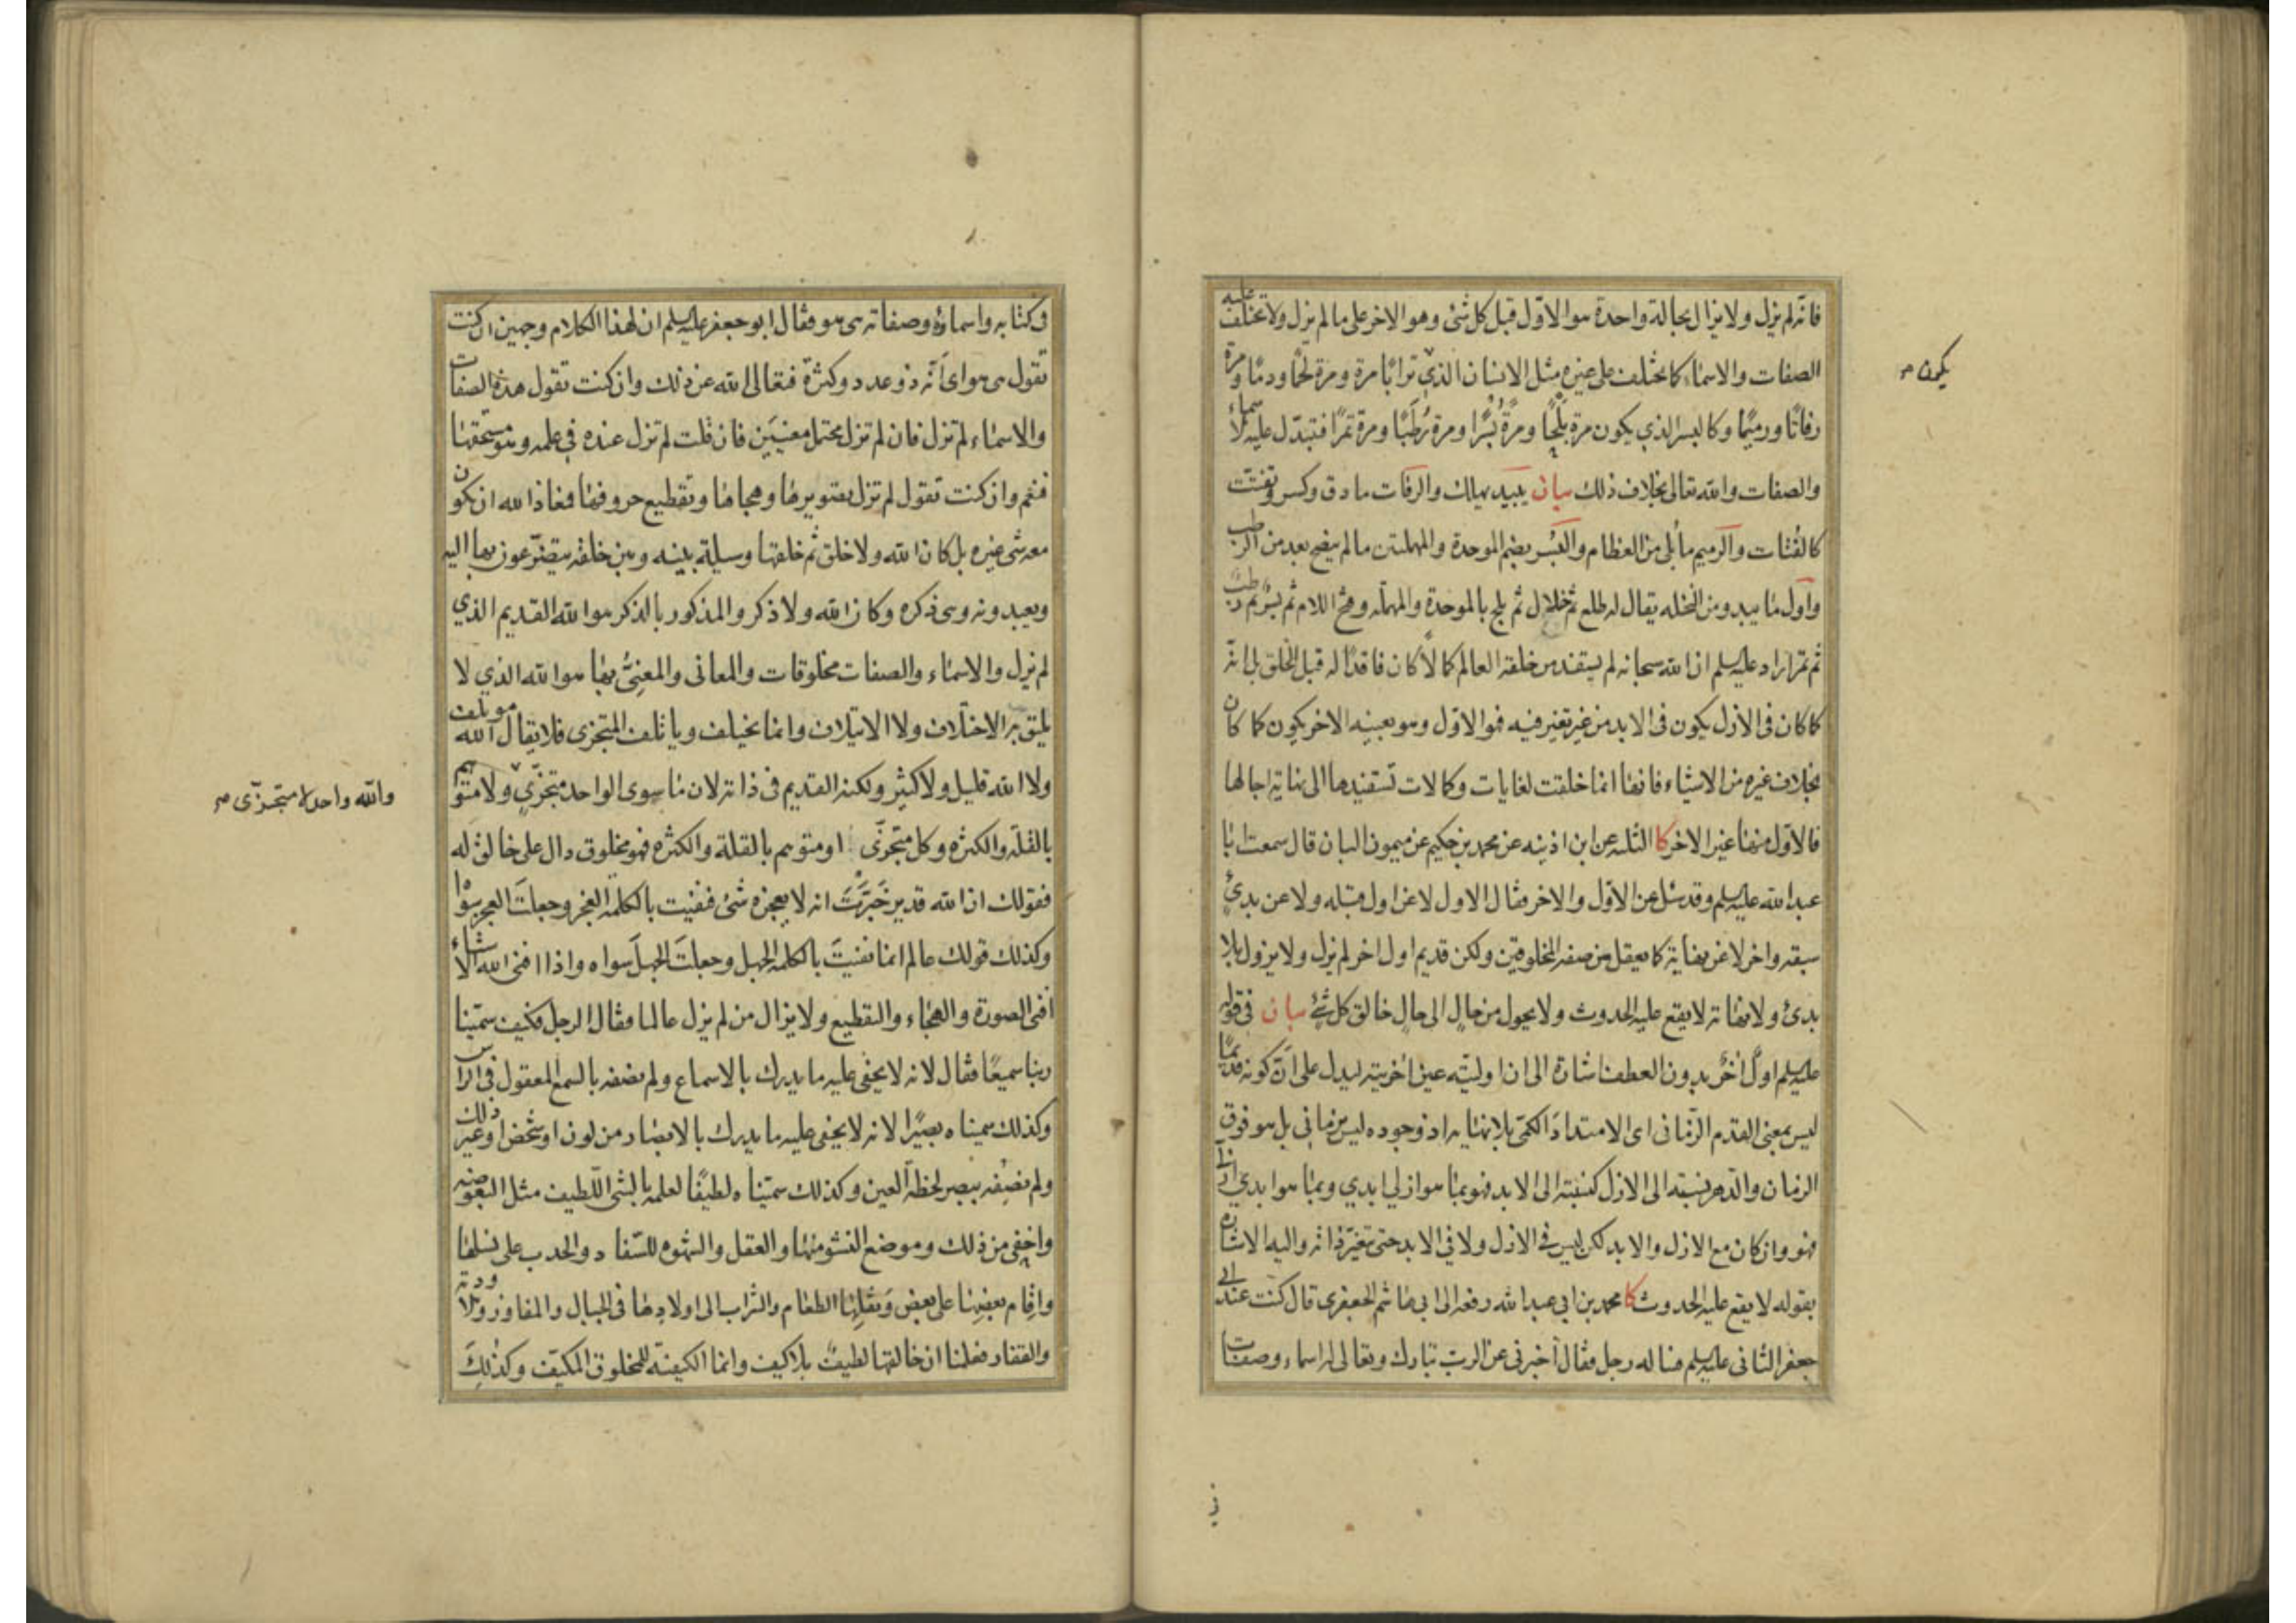 فانه لم يزل ولا يزال بحالة واحدة هو الاول قبل كل شئ وهو الاخر على ما لم يزل ولا تختلف عليه
الصفات والاسماء كما تختلف على غيره مثل الانسان الذي ترابا مرة ومرة لحما ودما ومرة
يكون صح
رفاتا ورميما وكالبسر الذي يكون مرة بلحا ومرة بسرا ومرة رطبا ومرة تمرا فتبدل عليه الاسماء
والصفات والله تعالى بخلاف ذلك بيان يبيد يهلك والرفات ما دق وكسر وتفتت
كالفتات والرميم ما بلى من العظام والبسر بضم الموحدة والمهملتين ما لم ينضج بعد من الرطب
واول ما يبدو من النخله يقال له طلع ثم خلال ثم بلح بالموحدة والمهملة وفتح اللام ثم بسر ثم رطب
ثم تمر اراد عليه السلم ان الله سبحانه لم يستفد من خلقه العالم كمالا كان فاقدا له قبل الخلق بل انه
كما كان فى الازل يكون فى الابد من غير تغير فيه فهو الاول وهو بعينه الاخر يكون كما كان
بخلاف غيره من الاشياء فانها انما خلقت لغايات وكمالات تستفيدها الى نهاية اجالها
فالاول منها غير الاخر كا الثلثه عن ابن اذينه عن محمد بن حكيم عن ميمون البان قال سمعت ابا
عبد الله عليه السلم وقد سئل عن الاول والاخر فقال الاول لا عن اول قبله ولا عن بدئ
سبقه واخر لا عن نهاية كما يعقل من صفة المخلوقين ولكن قديم اول اخر لم يزل ولا يزول بلا
بدئ ولا نهاية لا يقع عليه الحدوث ولا يحول من حال الى حال خالق كل شئ بيان فى قوله
عليه السلم اول اخر بدون العطف اشارة الى ان اوليته عين اخريته ليدل على ان كونه قديما
ليس بمعنى القدم الزمانى اى الامتداد الكمى بلا نهاية اذ وجوده ليس زمانى بل هو فوق
الزمان والدهر نسبته الى الازل كنسبته الى الابد فهو بما هو ازلي ابدي وبما هو ابدي ازلي
فهو وان كان مع الازل والابد لكن ليس في الازل ولا في الابد حتى تتغير ذاته واليه الاشارة
بقوله لا يقع عليه الحدوث كا محمد بن ابي عبد الله رفعه الى ابي هاشم الجعفرى قال كنت عند ابي
جعفر الثاني عليه السلم فساله رجل فقال اخبرني عن الرب تبارك وتعالى له اسماء وصفات
في
فى كتابه واسماؤه وصفاته هى هو فقال ابو جعفر عليه السلم ان لهذا الكلام وجهين ان كنت
تقول هى هو اى انه ذو عدد وكثرة فتعالى الله عن ذلك وان كنت تقول هذه الصفات
والاسماء لم تزل فان لم تزل محتمل معنيين فان قلت لم تزل عنده في علمه وهو مستحقها
فنعم وان كنت تقول لم تزل تصويرها وهجاها وتقطيع حروفها فمعاذ الله ان يكون
معه شئ غيره بل كان الله ولا خلق ثم خلقها وسيلة بينه وبين خلقه يتضرعون بها اليه
ويعبدونه وهى ذكره وكان الله ولا ذكر والمذكور بالذكر هو الله القديم الذي
لم يزل والاسماء والصفات مخلوقات والمعانى والمعنى بها هو الله الذي لا
يليق به الاختلاف ولا الايتلاف وانما يختلف وياتلف المتجزى فلا يقال الله موتلف
ولا الله قليل ولا كثير ولكنه القديم فى ذاته لان ما سوى الواحد متجزى ولا متوهم
والله واحد لا متجزى صح
بالقلة والكثرة وكل متجزى او متوهم بالقلة والكثره فهو مخلوق دال على خالق له
فقولك ان الله قدير خبرت انه لا يعجزه شئ فنفيت بالكلمة العجز وجعلت العجز سواه
وكذلك قولك عالم انما نفيت بالكلمة الجهل وجعلت الجهل سواه واذا افنى الله الاشياء
افنى الصورة والهجاء والتقطيع ولا يزال من لم يزل عالما فقال الرجل فكيف سمينا
ربنا سميعا فقال لانه لا يخفى عليه ما يدرك بالاسماع ولم نصفه بالسمع المعقول فى الراس
وكذلك سميناه بصيرا لانه لا يخفى عليه ما يدرك بالابصار من لون او شخص او غير ذلك
ولم نصفه ببصر لحظة العين وكذلك سميناه لطيفا لعلمه بالشى اللطيف مثل البعوضة
واخفى من ذلك وموضع النشو منها والعقل والشهوه للسفاد والحدب على نسلها
واقام بعضها على بعض ونقلها الطعام والشراب الى اولادها فى الجبال والمفاوز والاودية
والقفار فعلمنا ان خالقها لطيف بلا كيف وانما الكيفية للمخلوق المكيف وكذلك